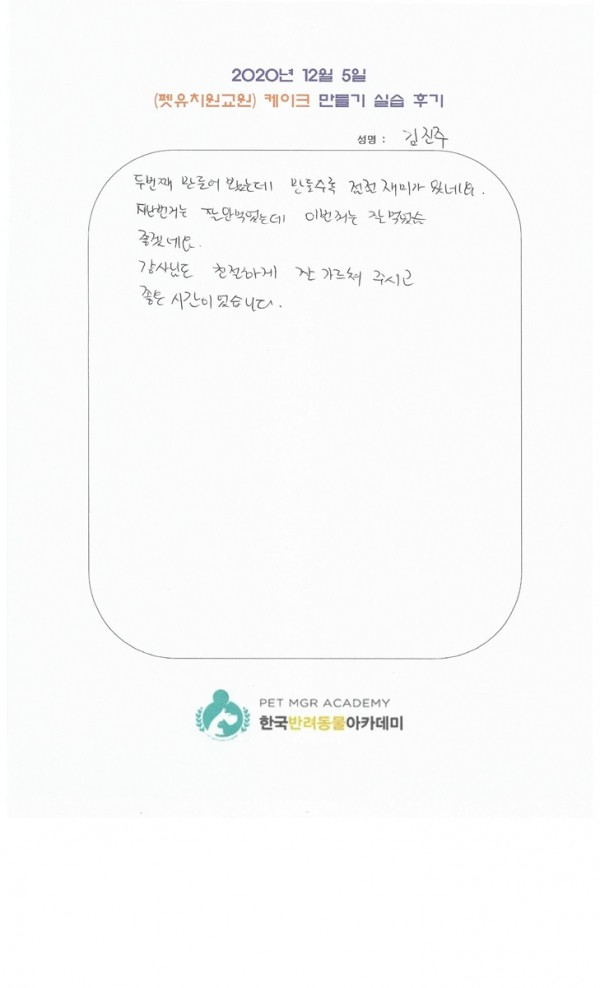 2020년 12월 5일
(펫유치원교원) 케이크 만들기 실습 후기
성명 : 김진주
두번째 만들어 봤는데 만들수록 점점 재미가 있네요.
지난번거는 잘 안먹었는데 이번거는 잘 먹었음
좋겠네요.
강사님도 친절하게 잘 가르쳐 주시고
좋은 시간이였습니다.
PET MGR ACADEMY
한국반려동물아카데미